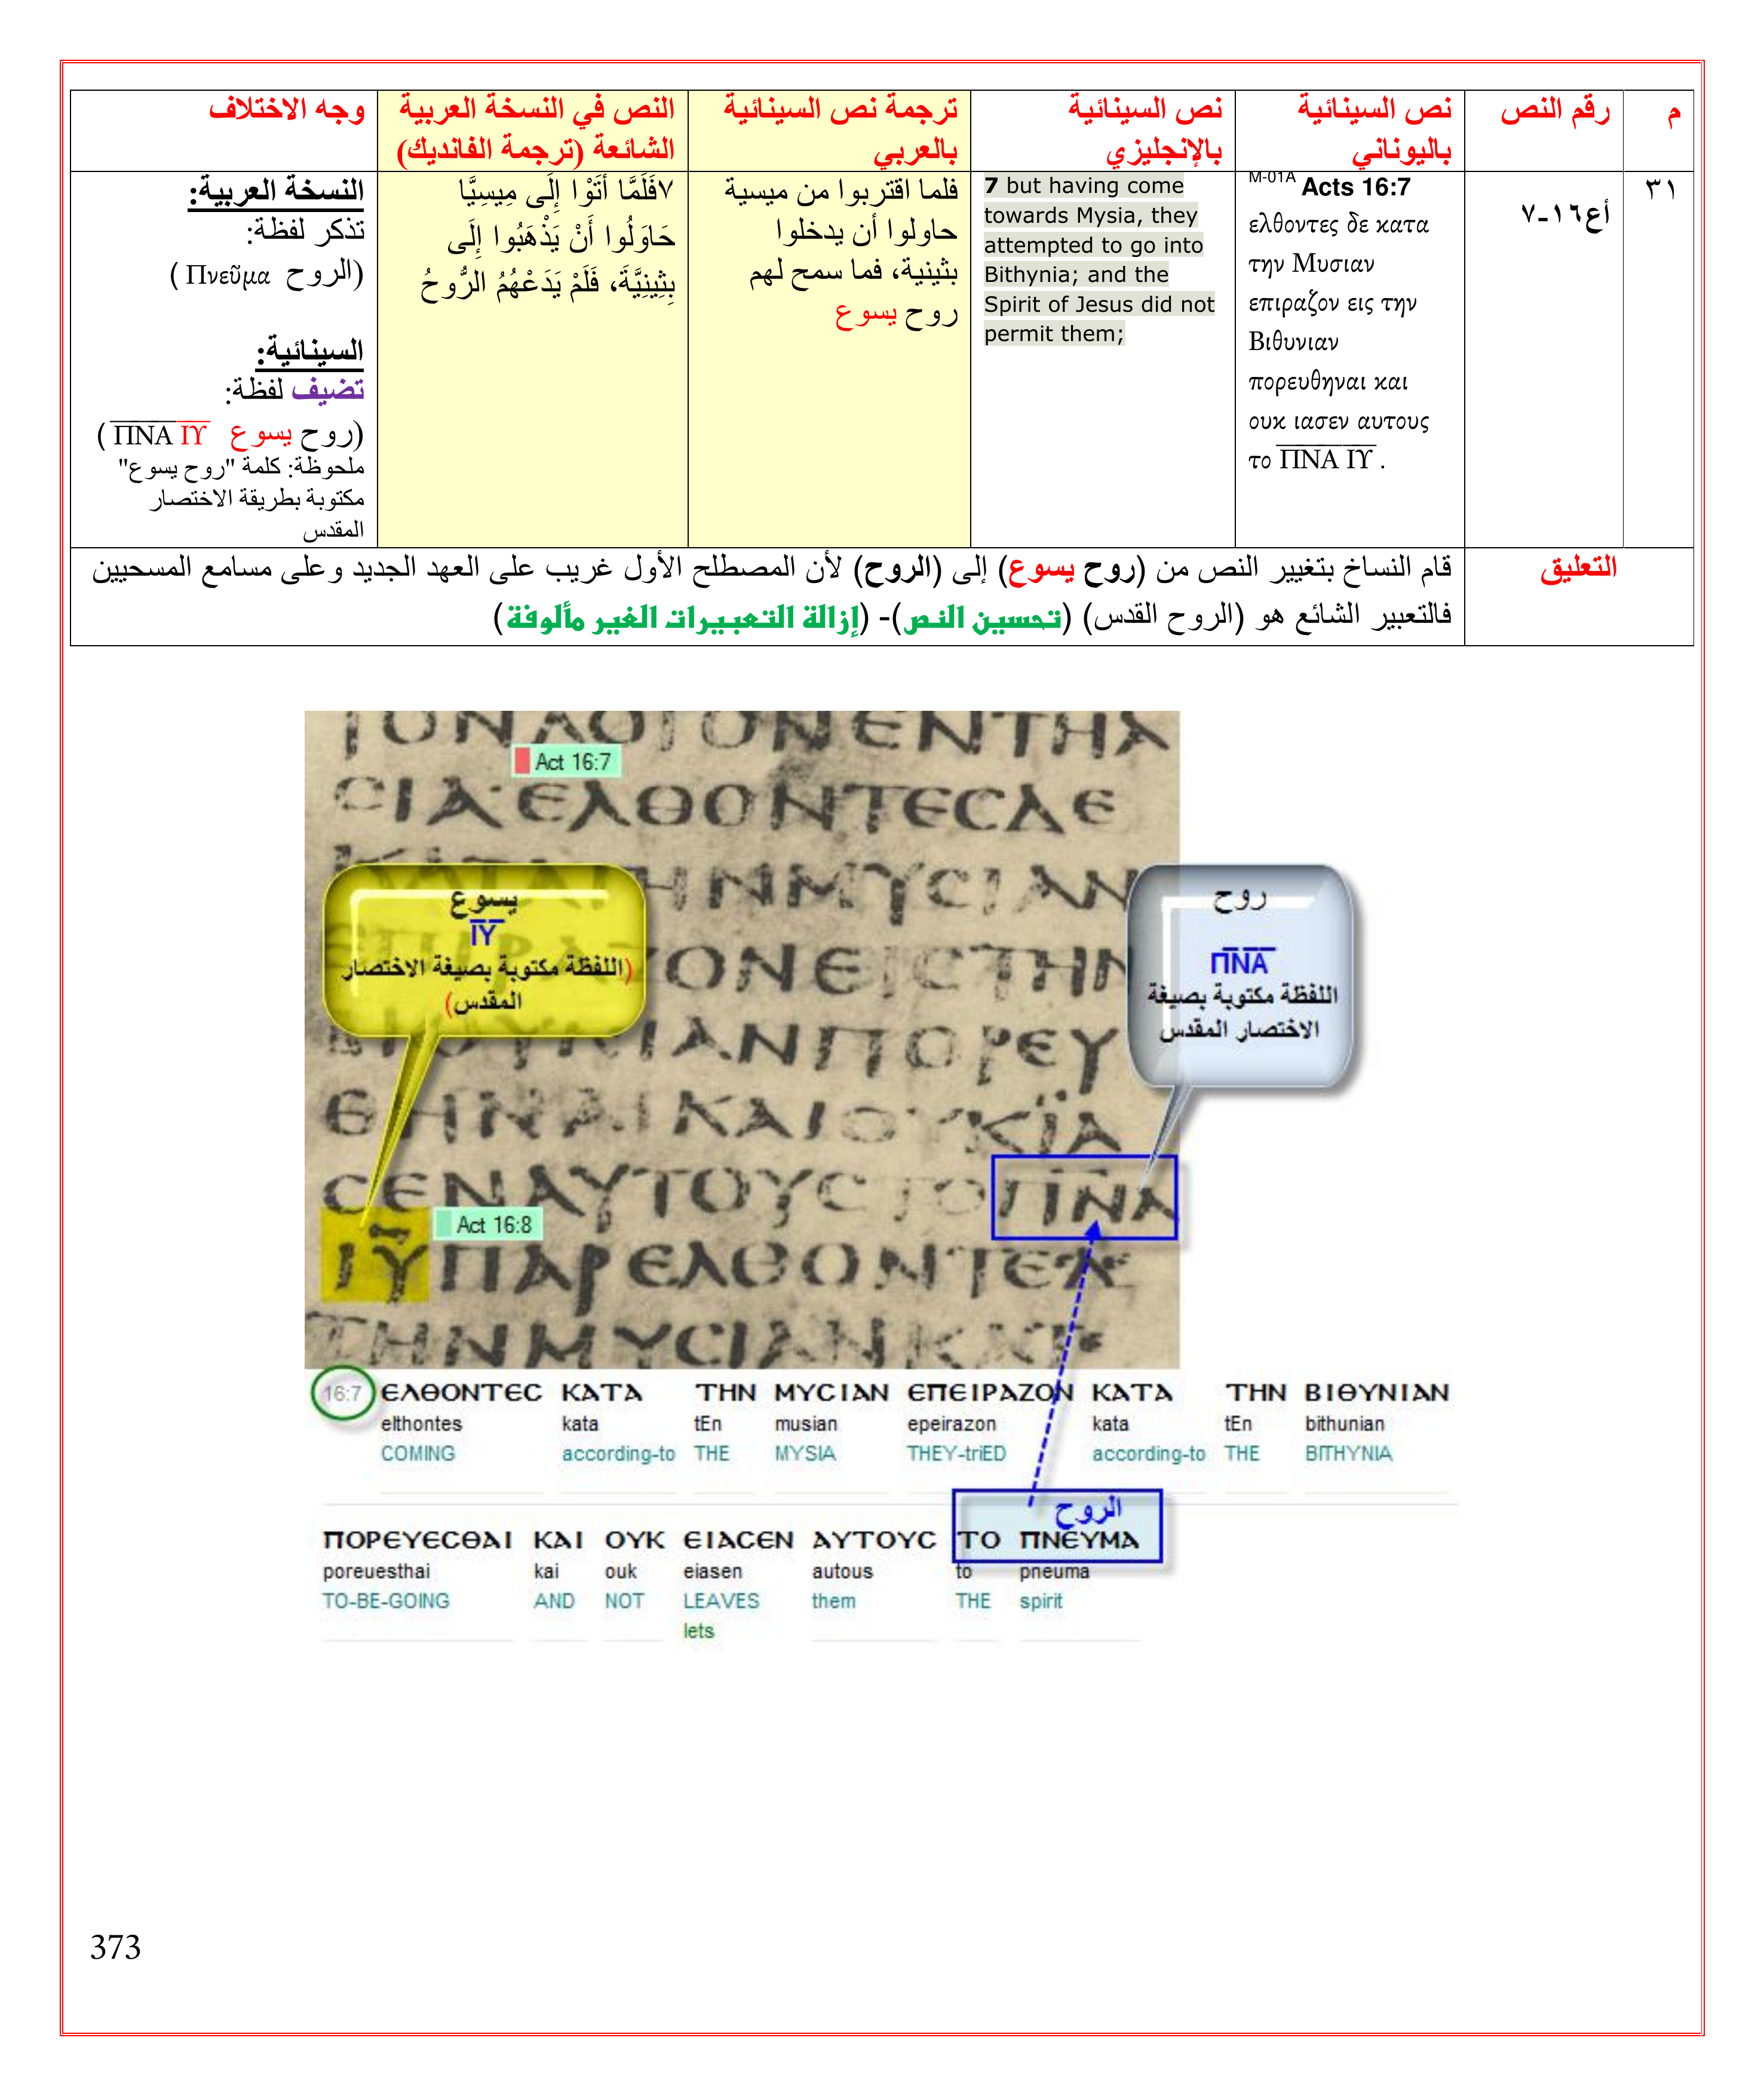 م
رقم النص
نص السينائية
باليوناني
نص السينائية
بالإنجليزي
ترجمة نص السينائية
بالعربي
النص في النسخة العربية
الشائعة (ترجمة الفانديك)
وجه الاختلاف
٣١
أع١٦-٧
M-01A Acts 16:7
ελθοντες δε κατα
την Μυσιαν
επιραζον εις την
Βιθυνιαν
πορευθηναι και
ουκ ιασεν αυτους
το Π̅Ν̅Α̅ Ι̅Υ̅ .
7 but having come
towards Mysia, they
attempted to go into
Bithynia; and the
Spirit of Jesus did not
permit them;
فلما اقتربوا من ميسية
حاولوا أن يدخلوا
بثينية، فما سمح لهم
روح يسوع
٧فَلَمَّا أَتَوْا إِلَى مِيسِيَّا
حَاوَلُوا أَنْ يَذْهَبُوا إِلَى
بِثِينِيَّةَ، فَلَمْ يَدَعْهُمُ الرُّوحُ
النسخة العربية:
تذكر لفظة:
(الروح Πνεῦμα )
السينائية:
تضيف لفظة:
(روح يسوع Π̅Ν̅Α̅ Ι̅Υ̅ )
ملحوظة: كلمة "روح يسوع"
مكتوبة بطريقة الاختصار
المقدس
التعليق
قام النساخ بتغيير النص من (روح يسوع) إلى (الروح) لأن المصطلح الأول غريب على العهد الجديد وعلى مسامع المسحيين
فالتعبير الشائع هو (الروح القدس) (تحسين النص)- (إزالة التعبيرات الغير مألوفة)
ΤΟΝΛΟΓΟΝΕΝΤΗΑ
Act 16:7
CΙΑ·ΕΛΘΟΝΤΕCΔΕ
ΗΝΜΥCΙΑΝ
ΟΝΕΙCΤΗΝ
ΙΑΝΠΟΡΕΥ
ΘΗΝΑΙΚΑΙΟΥΚΪΑ
CΕΝΑΥΤΟΥCΤΟΠ̅Ν̅Α̅
Act 16:8
Ι̅Υ̅ΠΑΡΕΛΘΟΝΤΕC
ΤΗΝΜΥCΙΑΝΚΑΤΕ
يسوع
Ι̅Υ̅
(اللفظة مكتوبة بصيغة الاختصار
المقدس)
روح
Π̅Ν̅Α̅
اللفظة مكتوبة بصيغة
الاختصار المقدس
16:7 ΕΛΘΟΝΤΕC ΚΑΤΑ ΤΗΝ ΜΥCΙΑΝ ΕΠΕΙΡΑΖΟΝ ΚΑΤΑ ΤΗΝ ΒΙΘΥΝΙΑΝ
elthontes kata tEn musian epeirazon kata tEn bithunian
COMING according-to THE MYSIA THEY-triED according-to THE BITHYNIA
الروح
ΠΟΡΕΥΕCΘΑΙ ΚΑΙ ΟΥΚ ΕΙΑCΕΝ ΑΥΤΟΥC ΤΟ ΠΝΕΥΜΑ
poreuesthai kai ouk eiasen autous to pneuma
TO-BE-GOING AND NOT LEAVES them THE spirit
lets
373